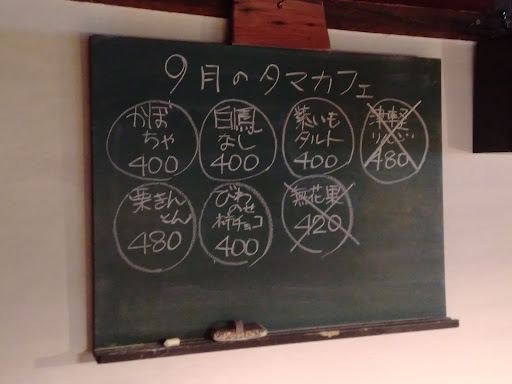 9月のタマカフェ
かぼ
ちゃ
400
なし
400
紫いも
タルト
400
津軽
りんご
480
栗きん
とん
480
びわ
のせ
柿チョコ
400
無花果
420